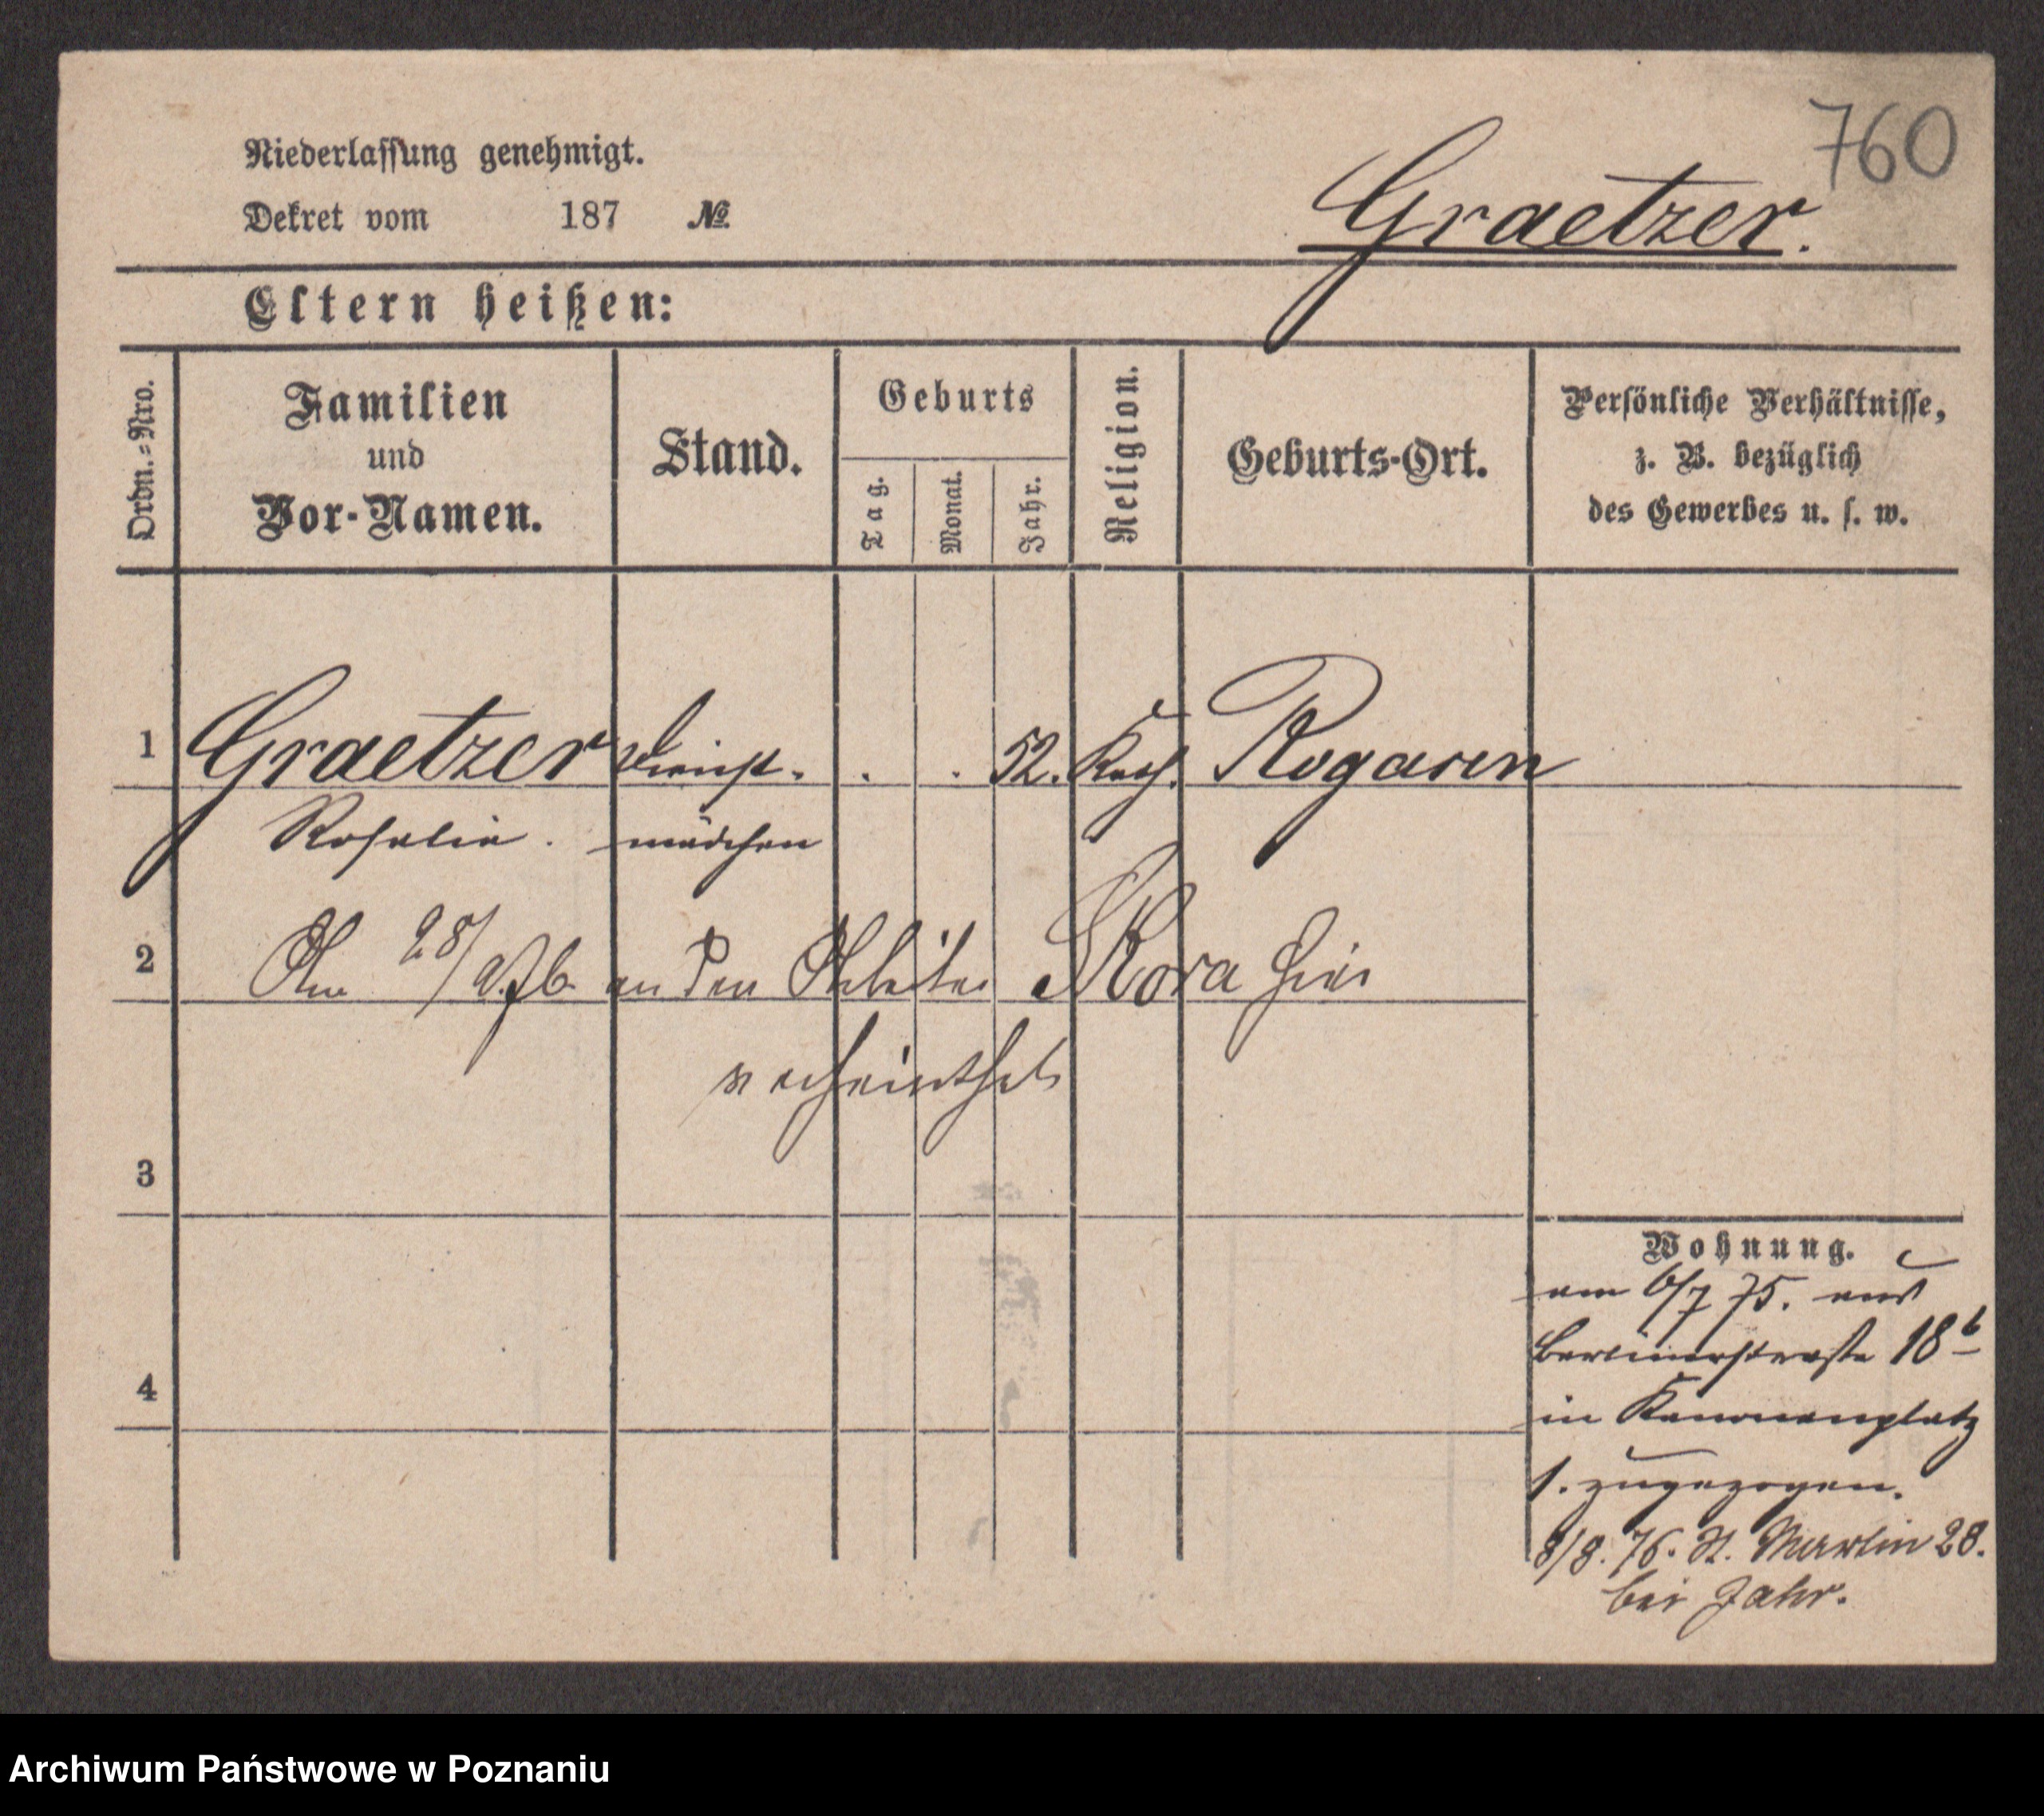 760
Niederlassung genehmigt.
Dekret vom 187 №
Graetzer.
Eltern heißen:
Ordn.-Nro.
Familien
und
Vor-Namen.
Stand.
Geburts
Tag.
Monat.
Jahr.
Religion.
Geburts-Ort.
Persönliche Verhältnisse,
z. B. bezüglich
des Gewerbes u. s. w.
1 Graetzer Dienst- . . 52. Kath. Rogasen
Rosalie. mädchen
2 Am 28/ an den Arbeiter Skora hier
verheirathet
3
4
Wohnung.
am 6/7 75. aus
Berlinerstraße 18b
in Kanonenplatz
1. zugezogen.
8/8. 76. St. Martin 28.
bei Jahr.
Archiwum Państwowe w Poznaniu